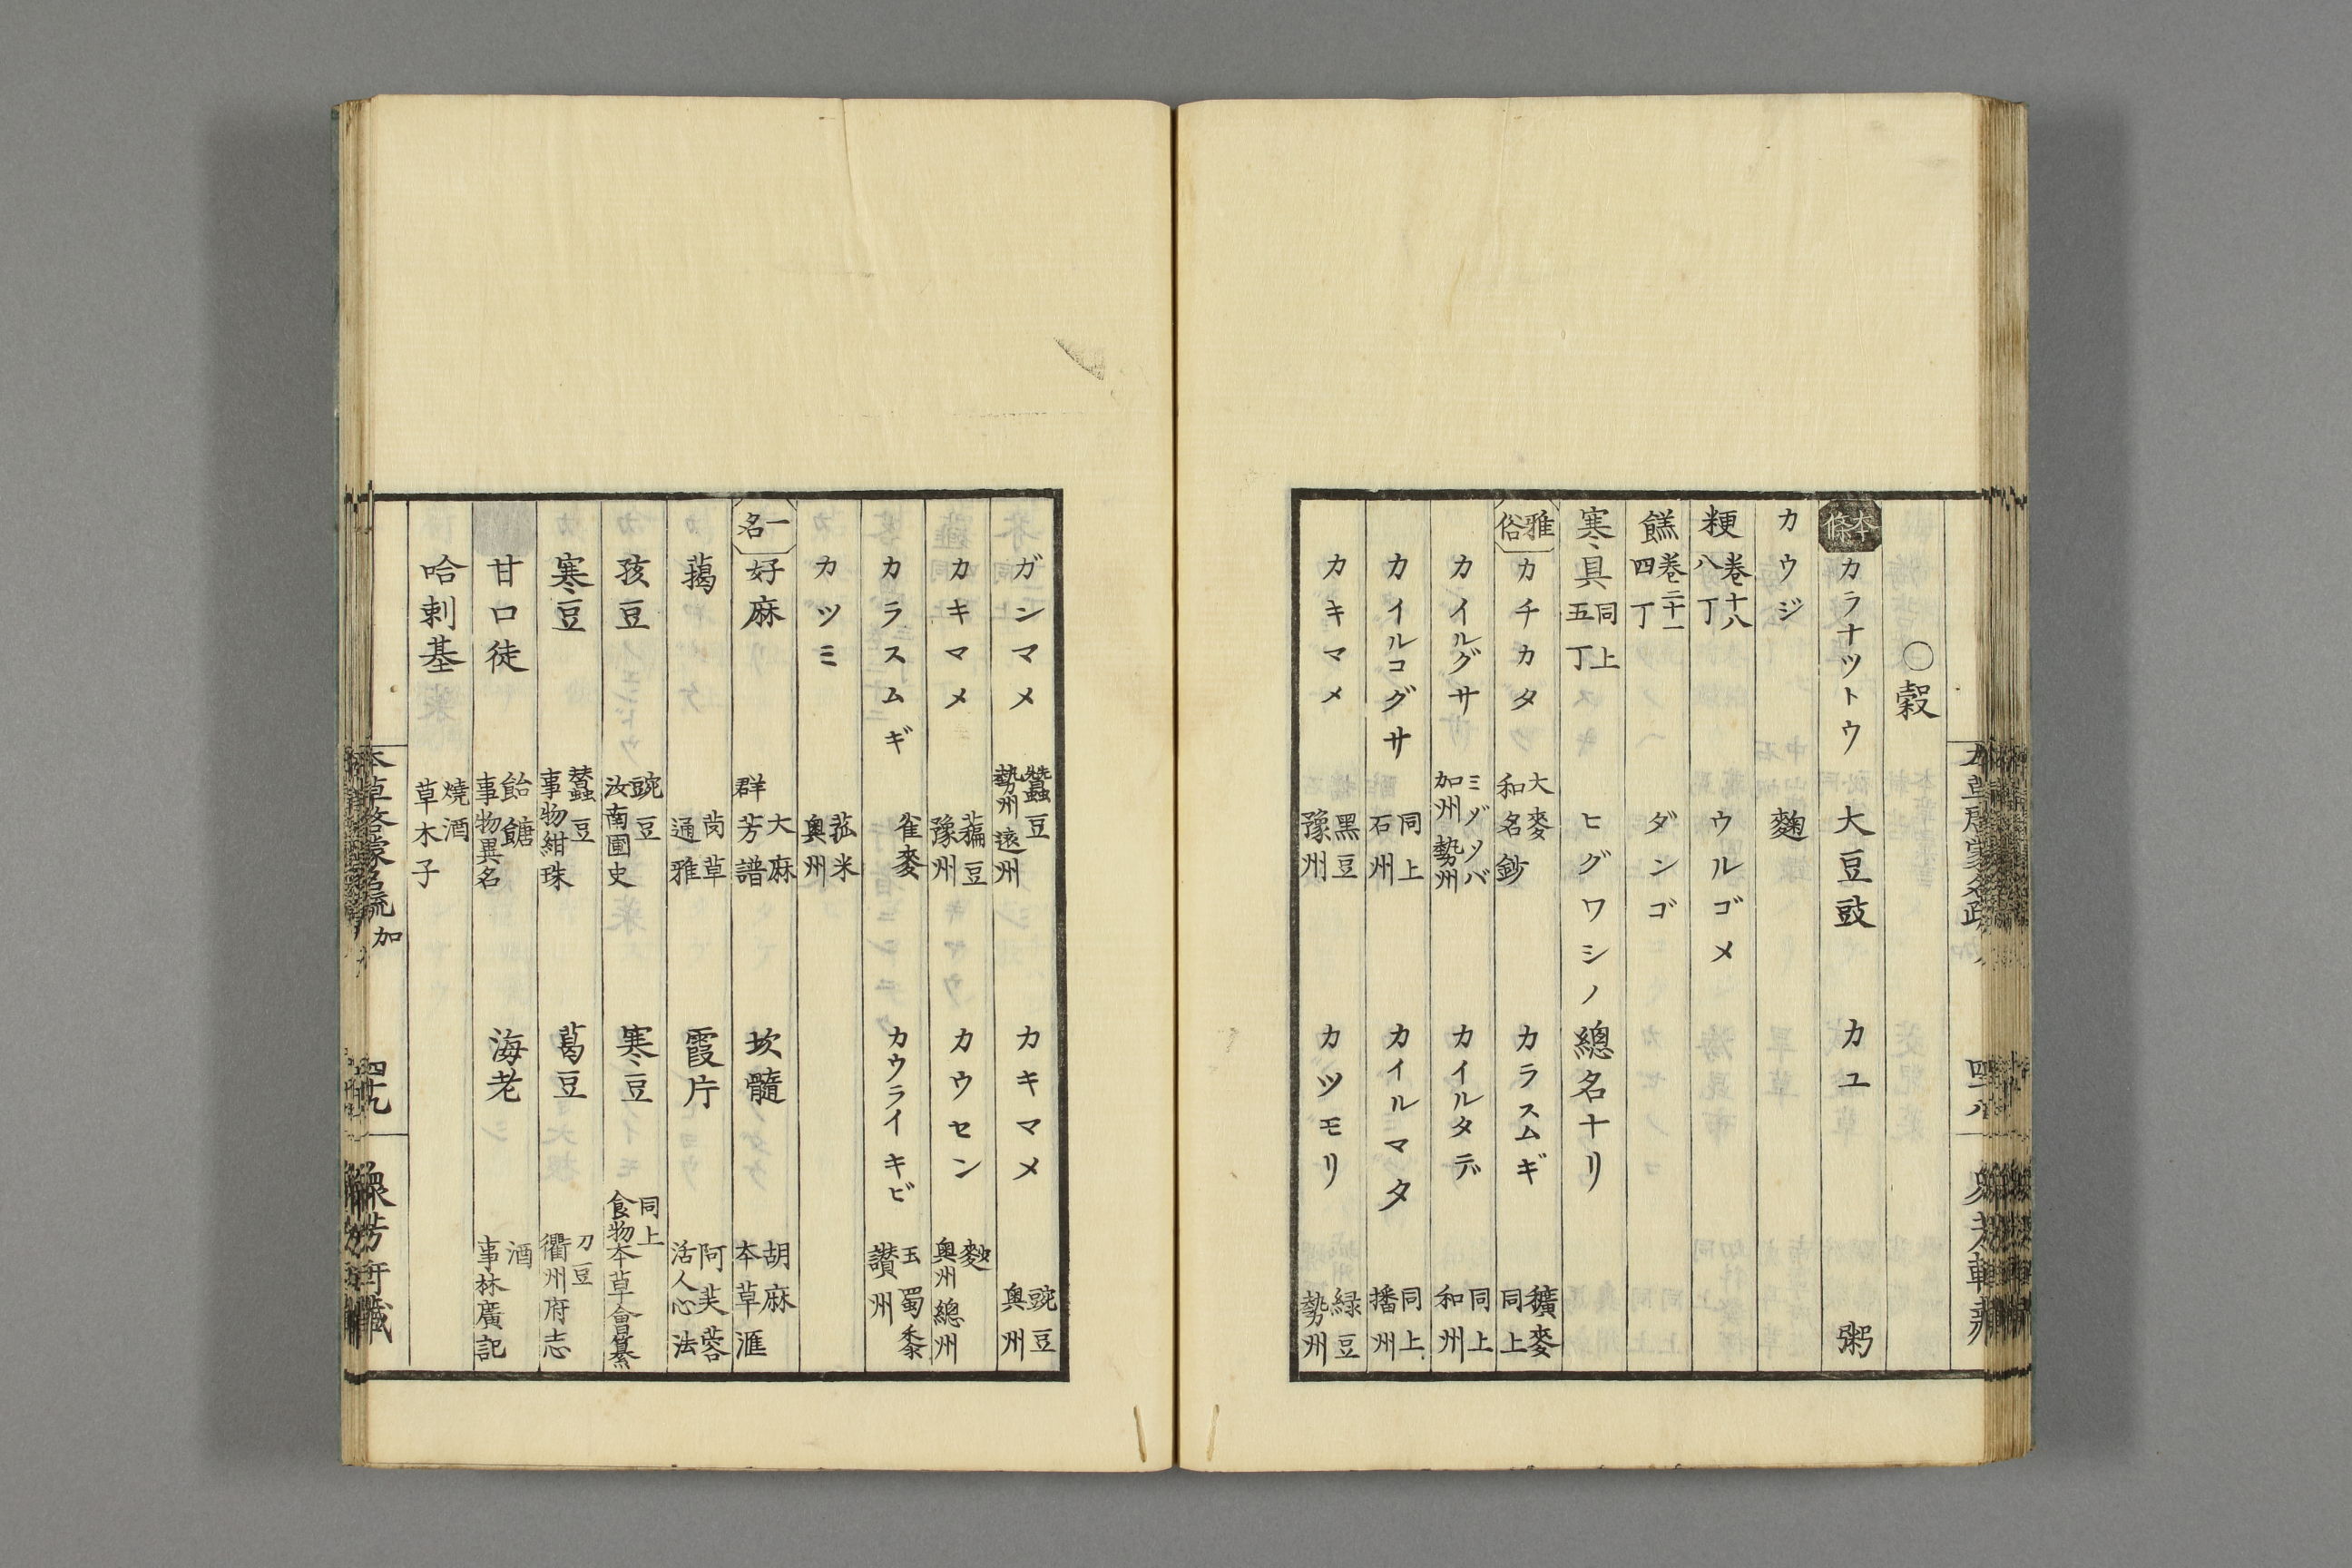 ○穀
本條 カラナツトウ 大豆豉 カユ 粥
カウジ 麴
粳 卷十八 八丁 ウルゴメ
餻 卷二十一 四丁 ダンゴ
寒具 同上 五丁 ヒグワシノ總名ナリ
雅俗 カチカタ 大麥 和名鈔 カラスムギ 穬麥 同上
カイルグサ ミゾソバ 加州 勢州 カイルタデ 同上 和州
カイルコグサ 同上 石州 カイルマタ 同上 播州
カキマメ 黑豆 豫州 カツモリ 緑豆 勢州
ガンマメ 蠶豆 勢州 遠州 カキマメ 豌豆 奥州
カキマメ 藊豆 豫州 カウセン 麨 奥州 總州
カラスムギ 雀麥 カウライキビ 玉蜀黍 讃州
カツミ 菰米 奥州
一名 好麻 大麻 群芳譜 坎髓 胡麻 本草滙
䓤 茵草 通雅 霞片 阿芙蓉 活人心法
孩豆 豌豆 汝南圃史 寒豆 同上 食物本草會纂
寒豆 蠶豆 事物紺珠 葛豆 刀豆 衢州府志
甘口徒 飴餹 事物異名 海老 酒 事林廣記
哈剌基 燒酒 草木子
本草啓蒙名疏 加 四十九